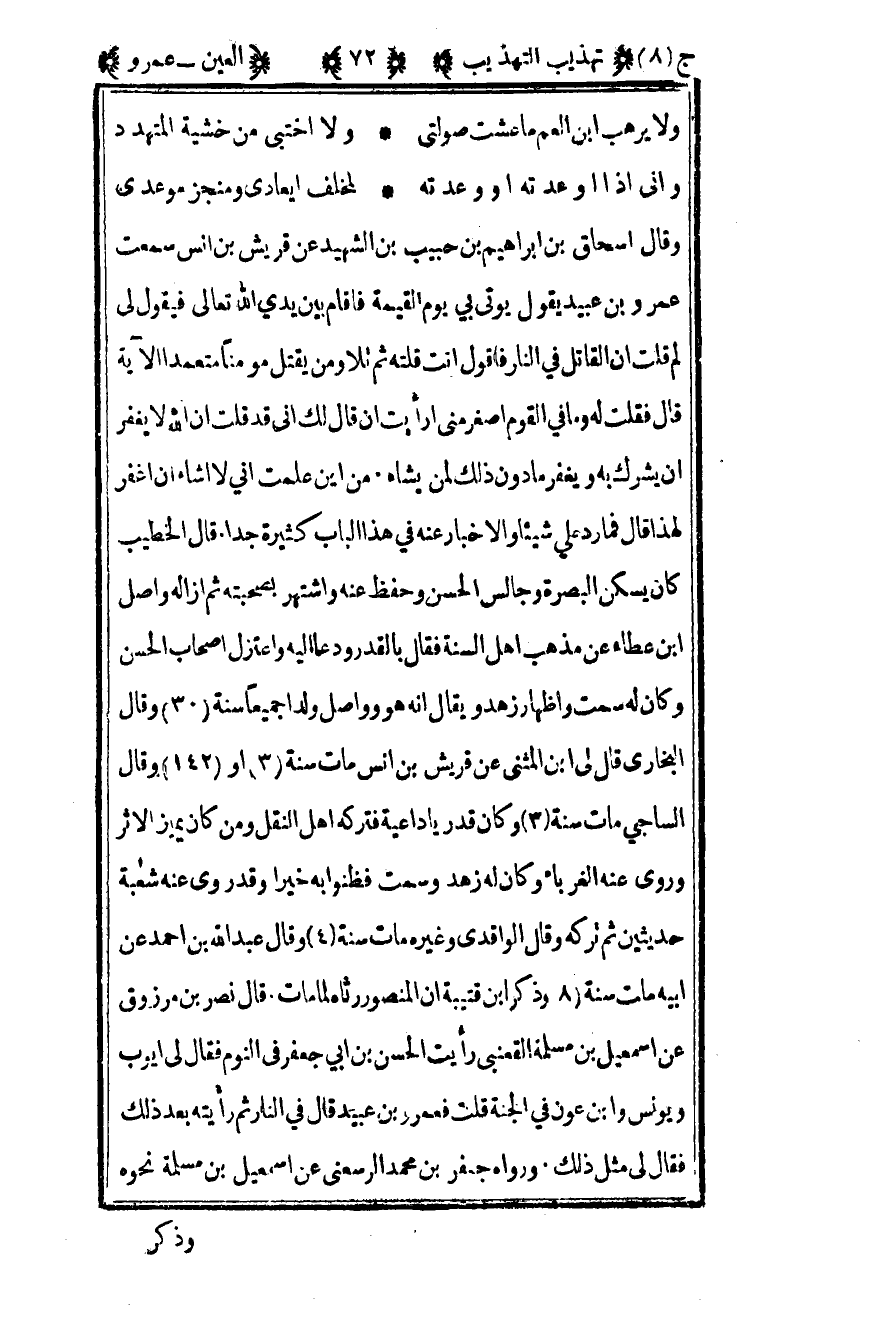 ج (٨) تهذيب التهذيب ٧٢ العين ـ عمرو
ولا يرهب ابن العم ماعشت صولتي * ولا اختبي من خشية المتهدد
واني اذا اوعدته اووعدته * لمخلف ايعادى ومنجز موعدى
وقال اسحاق بن ابراهيم بن حبيب بن الشهيد عن قريش بن انس سمعت
عمرو بن عبيد يقول يوتى بي يوم القيمة فاقام بين يدي الله تعالى فيقول لى
لم قلت ان القاتل في النار فاقول انت قلته ثم تلا ومن يقتل مومناً متعمدا الآية
قال فقلت له وما في القوم اصغر منى ارأيت ان قال لك انى قد قلت ان الله لا يغفر
ان يشرك به ويغفر مادون ذلك لمن يشاء . من اين علمت اني لا اشاء ان اغفر
لهذا قال فما رد علي شيئا والاخبار عنه في هذا الباب كثيرة جدا . قال الخطيب
كان يسكن البصرة وجالس الحسن وحفظ عنه واشتهر بصحبته ثم ازاله واصل
ابن عطاء عن مذهب اهل السنة فقال بالقدر ودعا اليه واعتزل اصحاب الحسن
وكان له سمت واظهار زهد ويقال انه هو وواصل ولدا جميعاً سنة (٣٠) وقال
البخارى قال لى ابن المثنى عن قريش بن انس مات سنة (٣) او (١٤٢) وقال
الساجي مات سنة (٣) وكان قدريا داعية فتركه اهل النقل ومن كان يميز الاثر
وروى عنه الغرباء وكان له زهد وسمت فظنوا به خيرا وقد روى عنه شعبة
حديثين ثم تركه وقال الواقدى وغيره مات سنة (٤) وقال عبدالله بن احمد عن
ابيه مات سنة (٨ وذكر ابن قتيبة ان المنصور رثاه لما مات . قال نصر بن مرزوق
عن اسمعيل بن مسلمة القعنبى رأيت الحسن بن ابي جعفر فى النوم فقال لى ايوب
ويونس وابن عون في الجنة قلت فعمرو بن عبيد قال في النار ثم رأيته بعد ذلك
فقال لى مثل ذلك . ورواه جعفر بن محمد الرسعنى عن اسمعيل بن مسلمة نحوه
وذكر